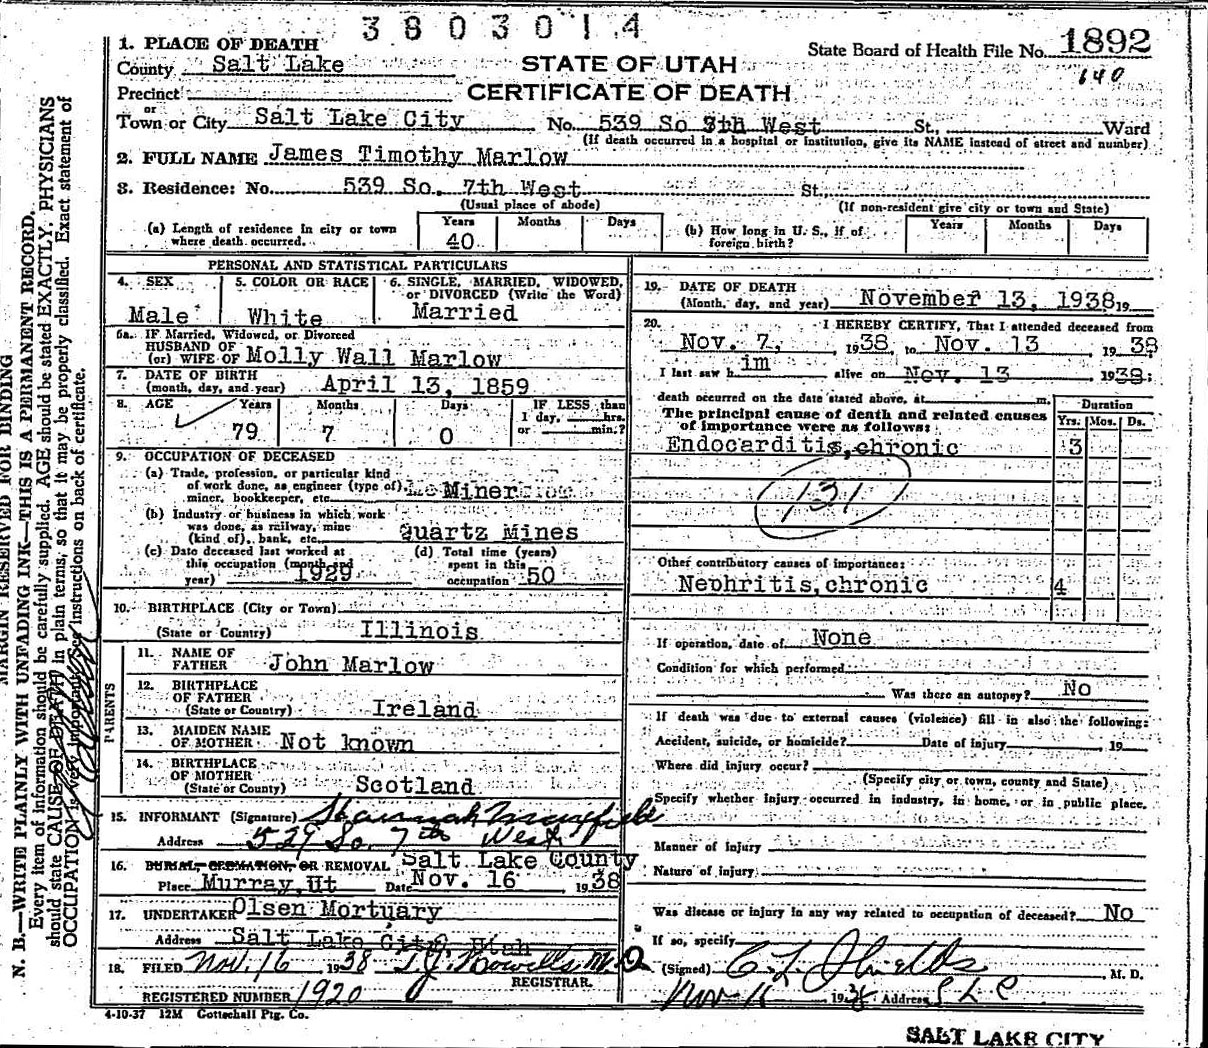 3 8 0 3 0 1 4
1. PLACE OF DEATH
State Board of Health File No. 1892
County Salt Lake
STATE OF UTAH
140
Precinct
CERTIFICATE OF DEATH
or
Town or City Salt Lake City No. 539 So 7th West St., Ward
(If death occurred in a hospital or institution, give its NAME instead of street and number)
2. FULL NAME James Timothy Marlow
3. Residence: No. 539 So. 7th West St.
(Usual place of abode) (If non-resident give city or town and State)
(a) Length of residence in city or town where death occurred. Years 40 Months Days
(b) How long in U. S., if of foreign birth? Years Months Days
PERSONAL AND STATISTICAL PARTICULARS
4. SEX Male
5. COLOR OR RACE White
6. SINGLE, MARRIED, WIDOWED, or DIVORCED (Write the Word) Married
6a. IF Married, Widowed, or Divorced
HUSBAND OF
(or) WIFE OF Molly Wall Marlow
7. DATE OF BIRTH
(month, day, and year) April 13, 1859
8. AGE Years Months Days IF LESS than
1 day, hrs.
or min.?
79 7 0
9. OCCUPATION OF DECEASED
(a) Trade, profession, or particular kind
of work done, as engineer (type of)
miner, bookkeeper, etc. Miner
(b) Industry or business in which work
was done, as railway, mine
(kind of), bank, etc. Quartz Mines
(c) Date deceased last worked at
this occupation (month and
year) 1929
(d) Total time (years)
spent in this
occupation 50
10. BIRTHPLACE (City or Town)
(State or Country) Illinois
PARENTS
11. NAME OF
FATHER John Marlow
12. BIRTHPLACE
OF FATHER
(State or Country) Ireland
13. MAIDEN NAME
OF MOTHER Not known
14. BIRTHPLACE
OF MOTHER
(State or County) Scotland
15. INFORMANT (Signature) Hannah
Address 529 So. 7th West
16. BURIAL, CREMATION, OR REMOVAL Salt Lake County
Place Murray, Ut Date Nov. 16 1938
17. UNDERTAKER Olsen Mortuary
Address Salt Lake City, Utah
18. FILED Nov. 16 1938 M.D.
REGISTRAR.
REGISTERED NUMBER 1920
4-10-37 12M Gottschall Ptg. Co.
19. DATE OF DEATH
(Month, day, and year) November 13, 1938 19
20. I HEREBY CERTIFY, That I attended deceased from
Nov. 7, 1938, to Nov. 13 1938
I last saw him alive on Nov. 13 1938;
death occurred on the date stated above, at m.
Duration
The principal cause of death and related causes
of importance were as follows:
Yrs. Mos. Ds.
Endocarditis, chronic 3
131
Other contributory causes of importance:
Nephritis, chronic 4
If operation, date of None
Condition for which performed
Was there an autopsy? No
If death was due to external causes (violence) fill in also the following:
Accident, suicide, or homicide? Date of injury , 19
Where did injury occur?
(Specify city or town, county and State)
Specify whether injury occurred in industry, in home, or in public place.
Manner of injury
Nature of injury
Was disease or injury in any way related to occupation of deceased? No
If so, specify
(Signed) C. L. Shields, M. D.
Nov 1938 Address S L C
SALT LAKE CITY
MARGIN RESERVED FOR BINDING
N. B.—WRITE PLAINLY WITH UNFADING INK—THIS IS A PERMANENT RECORD.
Every item of information should be carefully supplied. AGE should be stated EXACTLY. PHYSICIANS
should state CAUSE OF DEATH in plain terms, so that it may be properly classified. Exact statement of
OCCUPATION is very important. See instructions on back of certificate.